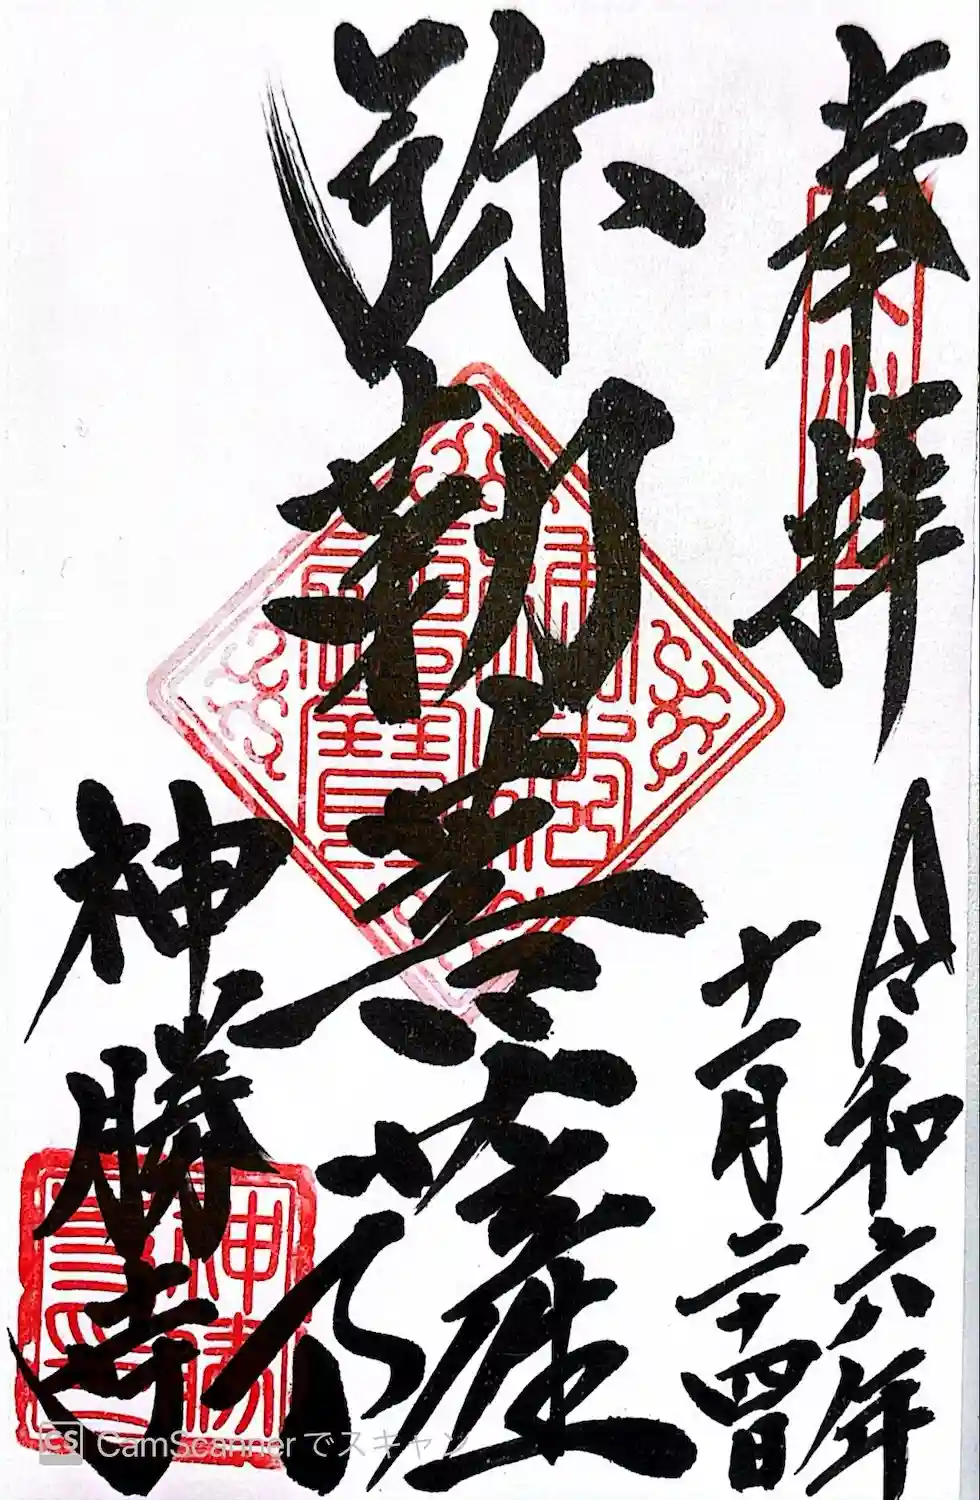 奉拝
令和六年
十一月二十四日
弥勒菩薩
神勝寺
CamScanner でスキャン